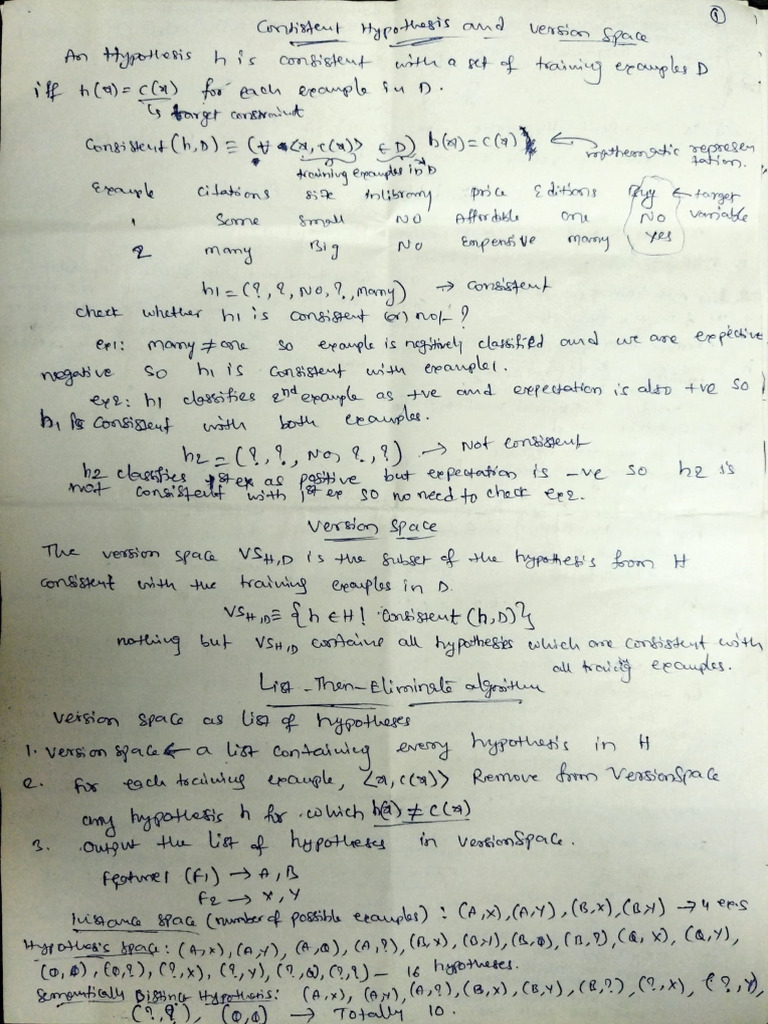 ①
Consistent Hypothesis and version Space
An Hypothesis h is consistent with a set of training examples D
iff h(x) = c(x) for each example in D.
↳ target constraint
Consistent (h,D) ≡ (∀ <x, c(x)> ∈ D) h(x) = c(x) ← mathematic represen
tation.
training examples in D
Example Citations size inlibrary price Editions Buy ← target
1 Some small NO Affordable one NO variable
2 many Big NO Expensive many Yes
h1 = (?, ?, NO, ?, many) → consistent
check whether h1 is consistent (or) not?
ex1: many ≠ one so example is negitively classified and we are expective
negative so h1 is consistent with example1.
ex2: h1 classifies 2nd example as +ve and expectation is also +ve so
h1 is consistent with both examples.
h2 = (?, ?, NO, ?, ?) → Not consistent
h2 classifies 1st ex as positive but expectation is -ve so h2 is
not consistent with 1st ex so no need to check ex2.
Version Space
The version space VSH,D is the subset of the hypothesis from H
consistent with the training examples in D.
VSH,D ≡ {h ∈ H | Consistent (h,D)}
nothing but VSH,D contains all hypothesis which are consistent with
all traing examples.
List-Then-Eliminate algorithm
Version space as list of hypotheses
1. Version space ← a list containing every hypothesis in H
2. For each training example, <x, c(x)> Remove from VersionSpace
any hypothesis h for which h(x) ≠ c(x)
3. Output the list of hypotheses in versionSpace.
Features (F1) → A, B
F2 → X, Y
Instance space (number of possible examples) : (A,X), (A,Y), (B,X), (B,Y) → 4 exs
Hypothesis Space: (A,X), (A,Y), (A,Ø), (A,?), (B,X), (B,Y), (B,Ø), (B,?), (Ø,X), (Ø,Y),
(Ø,Ø), (Ø,?), (?,X), (?,Y), (?,Ø), (?,?) - 16 hypotheses.
Semantically Distinct Hypothesis: (A,X), (A,Y), (A,?), (B,X), (B,Y), (B,?), (?,X), (?,Y),
(?,?), (Ø,Ø) → Totally 10.